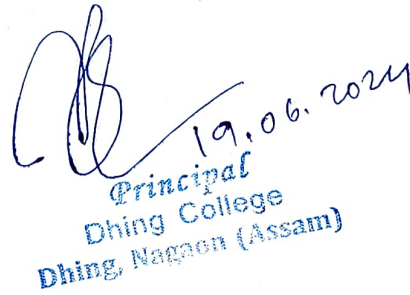 19.06.2024
Principal
Dhing College
Dhing, Nagaon (Assam)